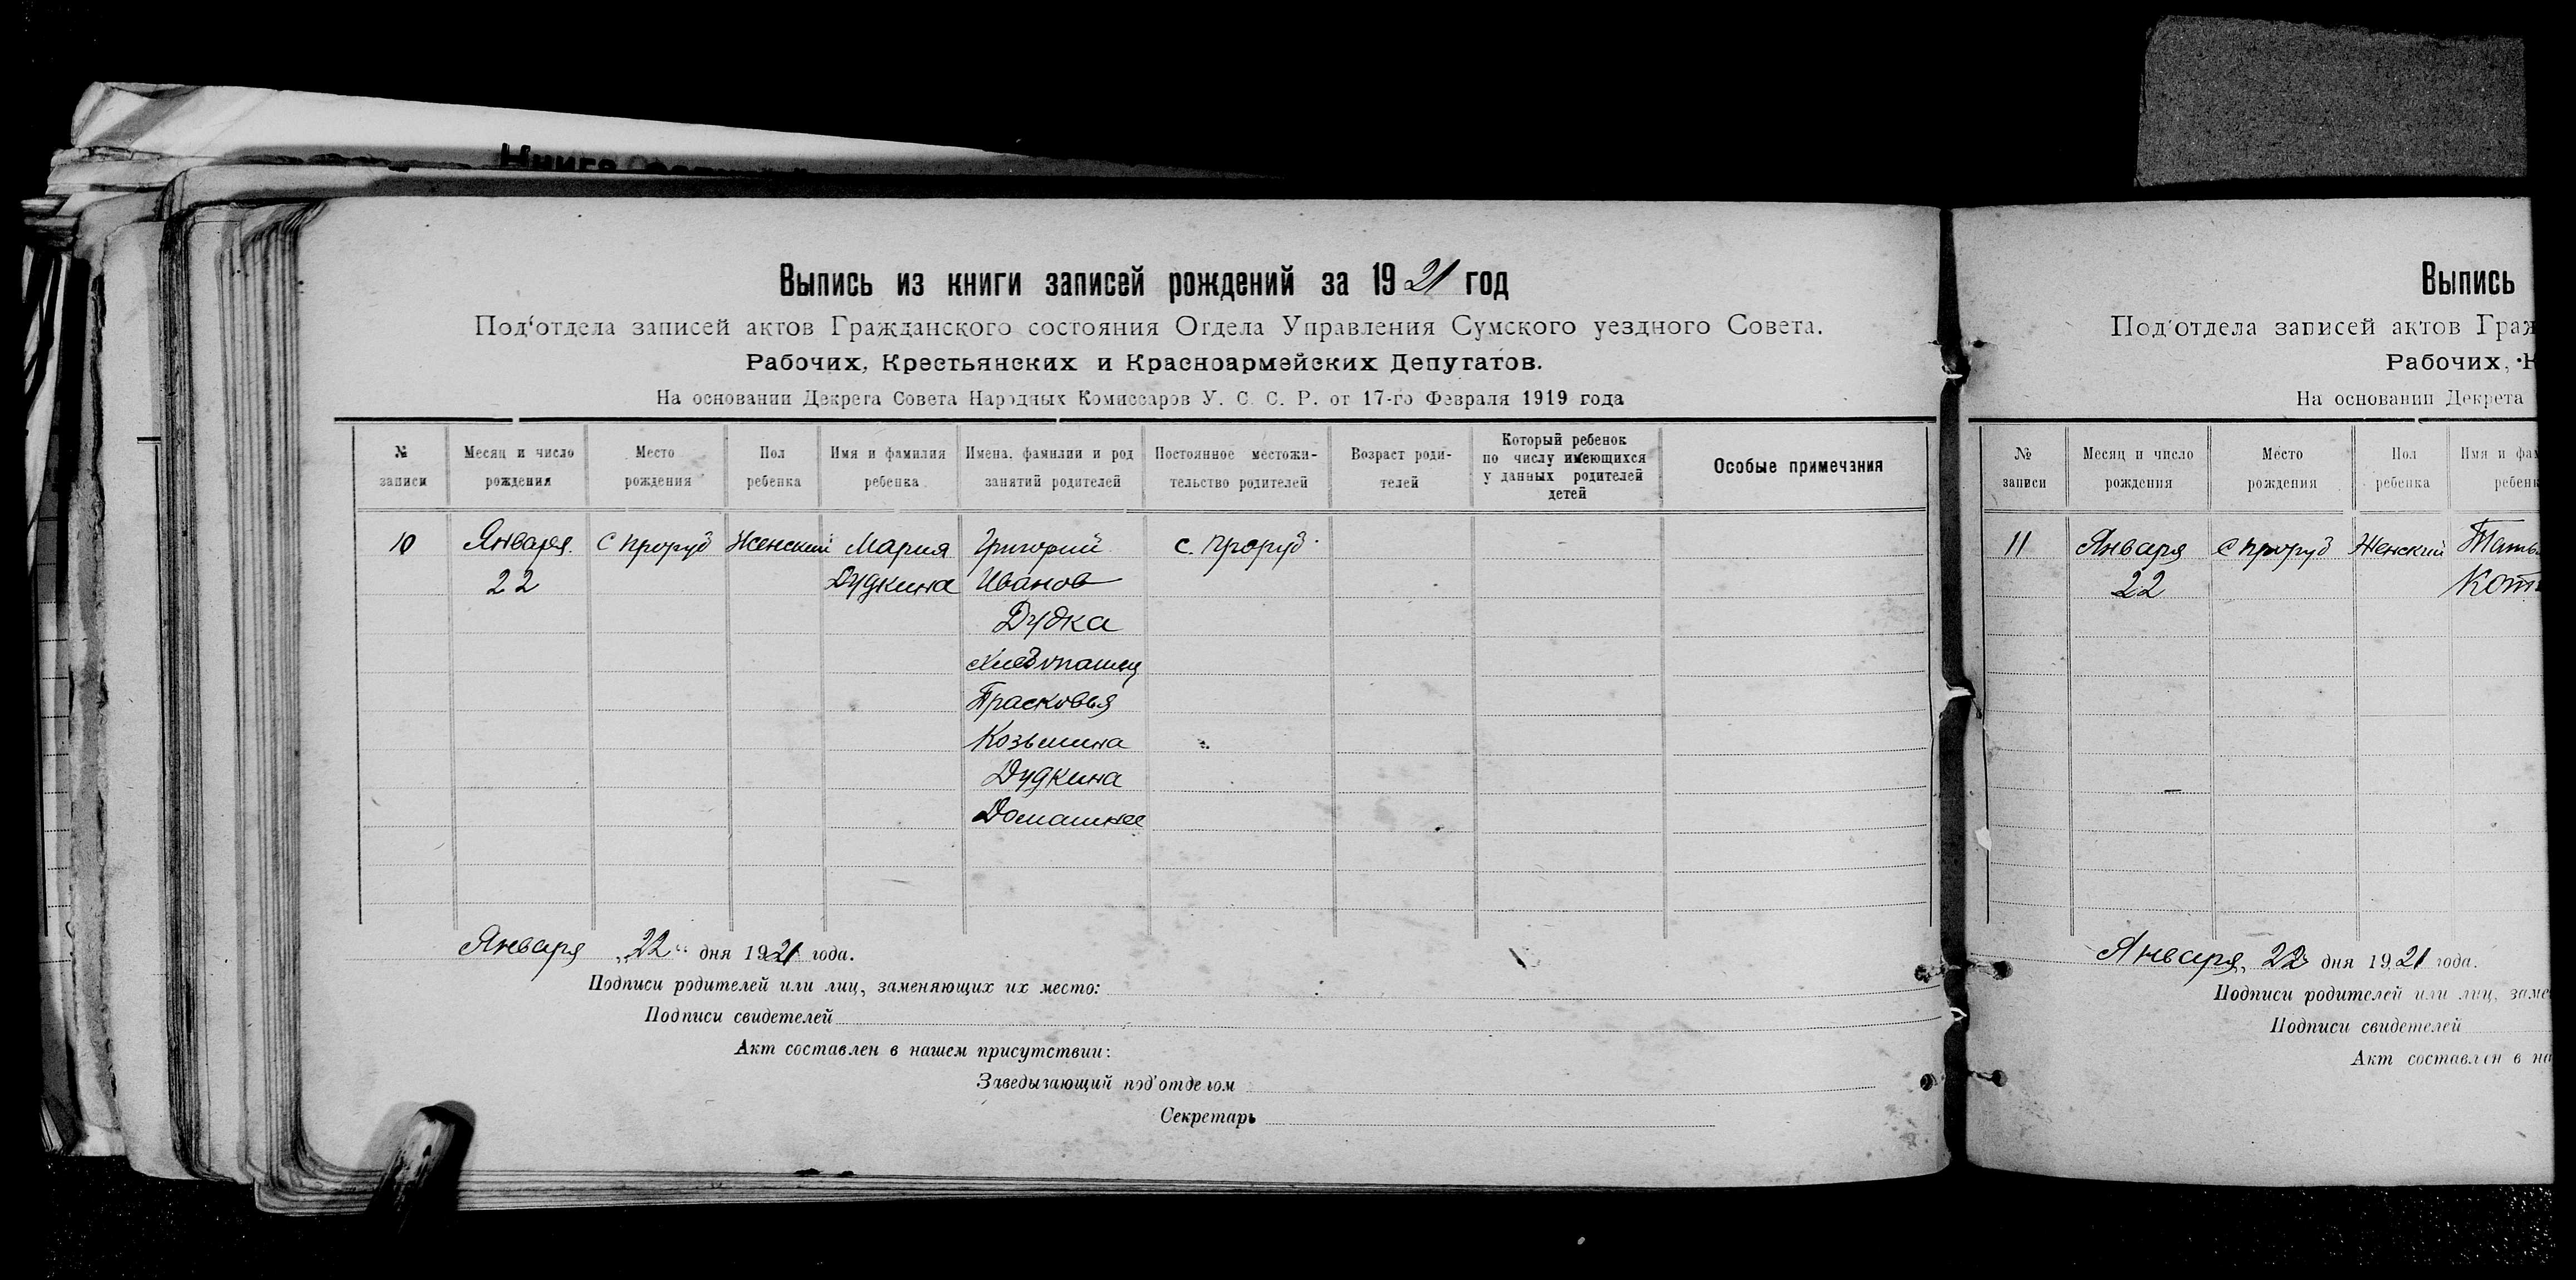 Книга
Выпись из книги записей рождений за 1921 год
Под'отдела записей актов Гражданского состояния Отдела Управления Сумского уездного Совета.
Рабочих, Крестьянских и Красноармейских Депутатов.
На основании Декрета Совета Народных Комиссаров У. С. С. Р. от 17-го Февраля 1919 года
№ записи
Месяц и число рождения
Место рождения
Пол ребенка
Имя и фамилия ребенка
Имена, фамилии и род занятий родителей
Постоянное местожительство родителей
Возраст родителей
Который ребенок по числу имеющихся у данных родителей детей
Особые примечания
10 Января с Проруб Женский Мария Григорий с. Проруб
22 Дудкина Иванов
Дудка
Хлебопашец
Прасковья
Козьмина
Дудкина
Домашнее
Января „22“ дня 1921 года.
Подписи родителей или лиц, заменяющих их место:
Подписи свидетелей
Акт составлен в нашем присутствии:
Заведывающий под'отделом
Секретарь
Выпись
Под'отдела записей актов Граж
Рабочих, К
На основании Декрета
№ записи
Месяц и число рождения
Место рождения
Пол ребенка
Имя и фам
ребенк
11 Января с Проруб Женский Татья
22 Кот
Января 22 дня 1921 года.
Подписи родителей или лиц, заме
Подписи свидетелей
Акт составлен в на